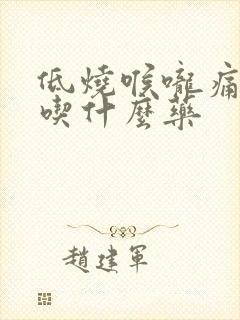 低燒喉嚨痛
喫什麼藥
趙建軍